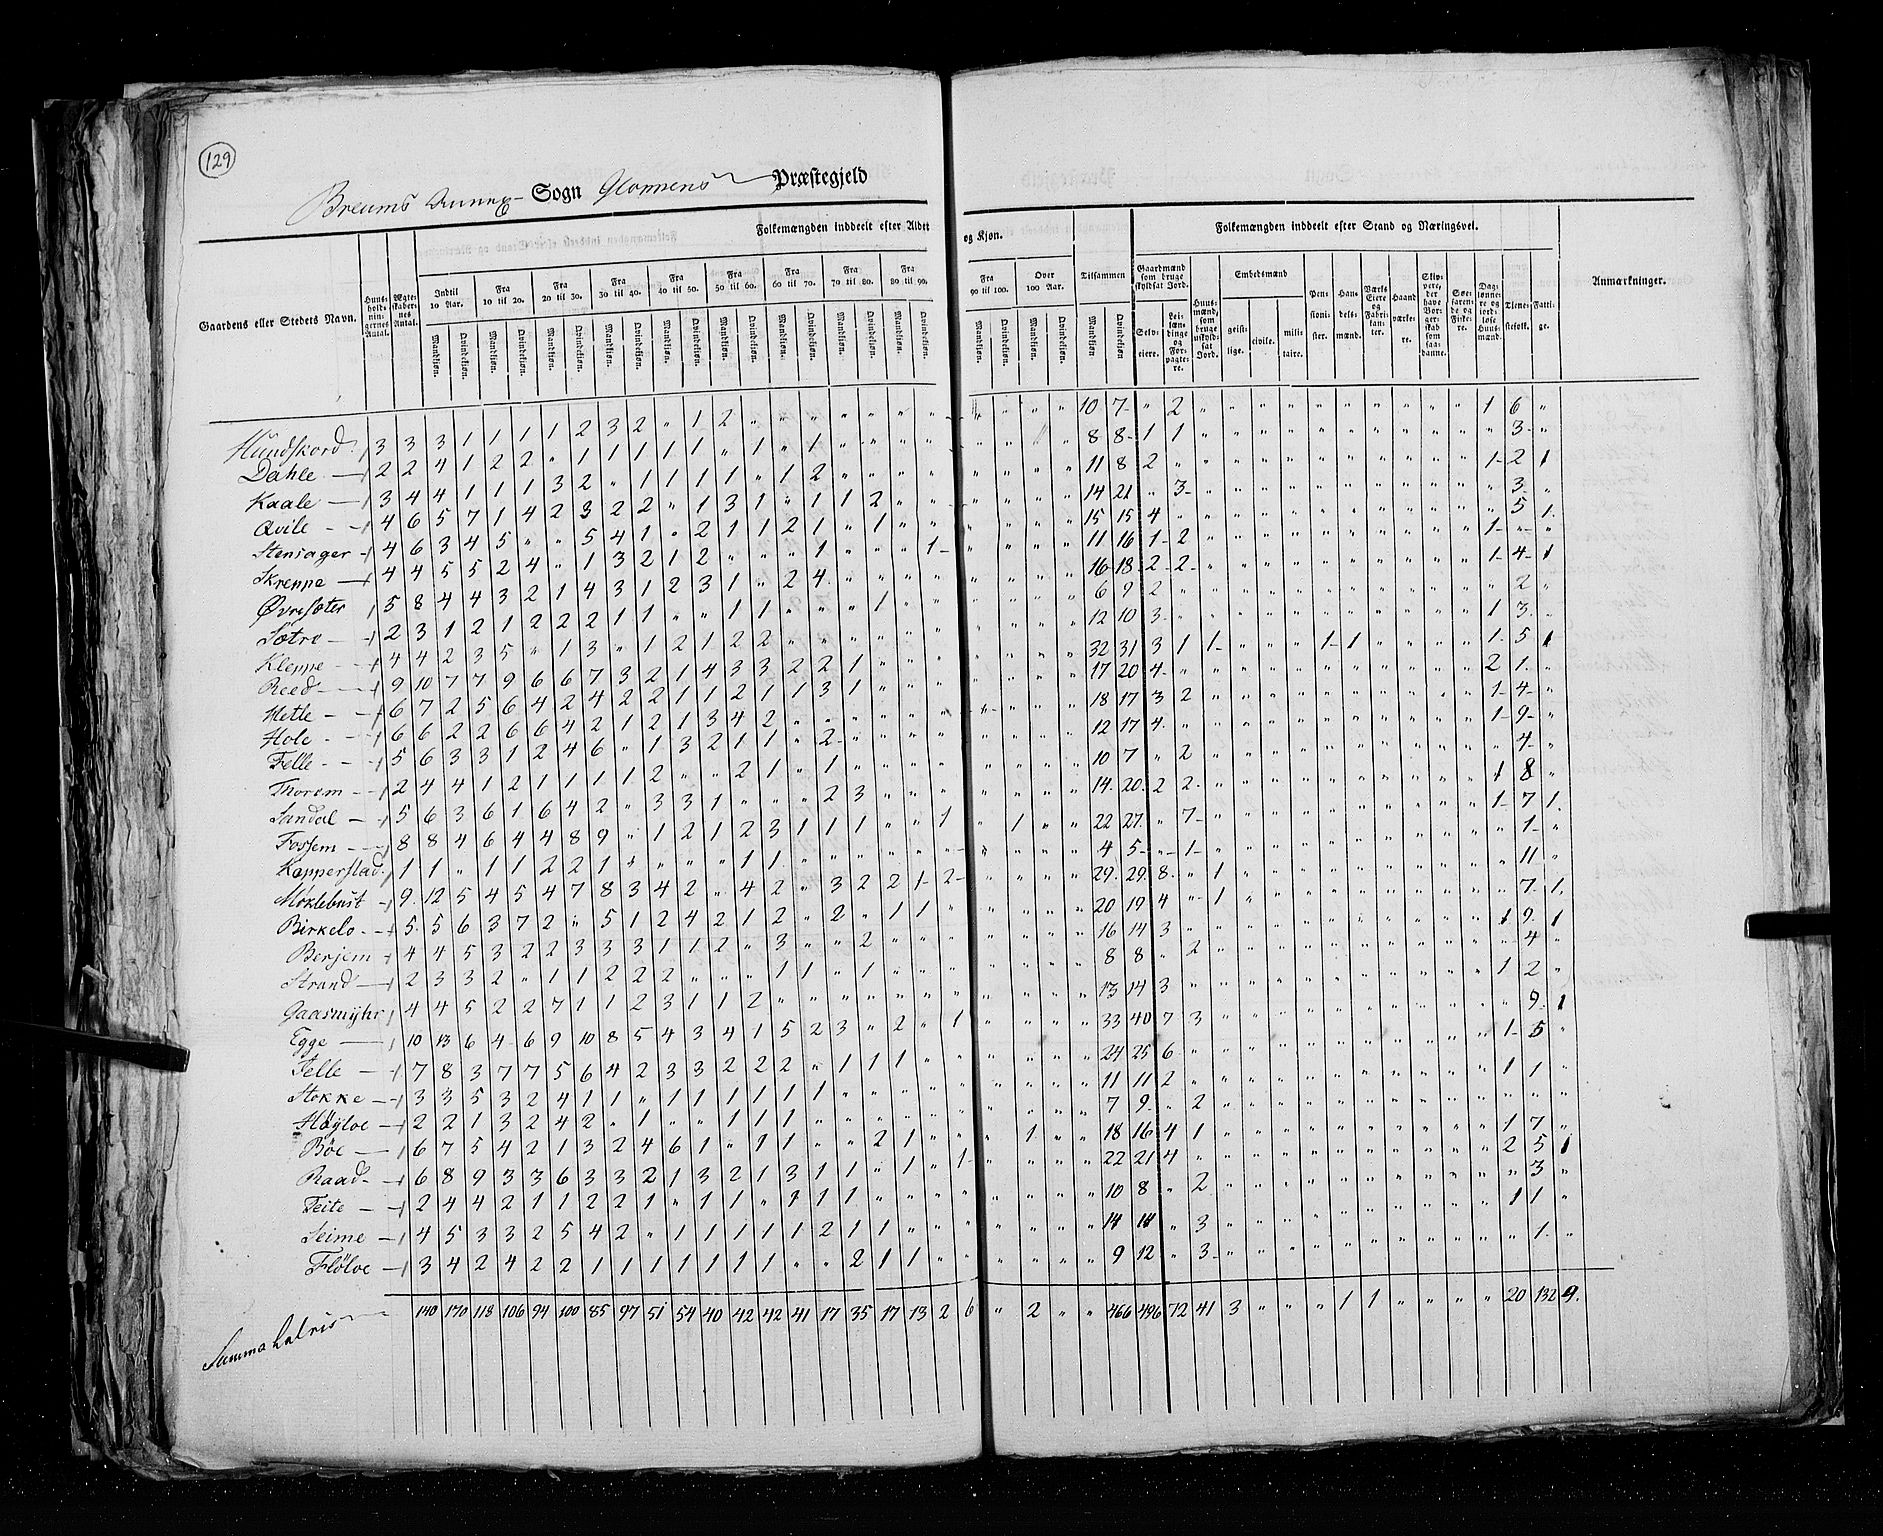 129
Breums Annex Sogn Præstegjeld
Folkemængden inddeelt efter Alder og Kjøn. Folkemængden inddeelt efter Stand og Næringsvei.
Gaardens eller Stedets Navn. Huus-holdnin-gernes Antal. Ægte-skaber-nes Antal. Indtil 10 Aar. Fra 10 til 20. Fra 20 til 30. Fra 30 til 40. Fra 40 til 50. Fra 50 til 60. Fra 60 til 70. Fra 70 til 80. Fra 80 til 90. Fra 90 til 100. Over 100 Aar. Tilsammen Gaardmænd som bruge skyldsat Jord. Huus-mænd, som bruge uskyld-sat Jord. Embedsmænd Pen-sioni-ster. Han-dels-mænd. Værks Eiere og Fabri-kan-ter. Haand værke-re. Tjene-stefolk. Fatti-ge. Anmærkninger.
Mandkjøn. Qvindekjøn. Selv-eiere. geist-lige. civile. mili-taire.
Hundskord 3 3 3 1 1 1 1 1 2 3 2 " 1 2 10 7 " 2 1 6 "
Dahle 2 2 4 1 2 2 " 1 1 1 1 1 " 1 " 1 8 8 1 1 3 "
Kaale 3 4 4 1 1 1 3 2 " 1 1 1 1 " 1 2 11 8 2 1 2 1
Qvile 4 6 5 7 1 4 2 3 2 2 " 1 3 1 " 1 1 2 14 21 " 3 3 "
Stensager 4 6 3 4 5 " " 5 4 1 " 2 1 1 2 1 " 1 15 15 4 5 1
Skreppe 4 4 5 5 2 4 " 1 3 2 1 2 " " " 1 " " " 1 11 16 1 2 1 " "
Øvresæter 5 8 4 4 3 2 1 4 3 1 2 3 1 " 2 4 16 18 2 2 1 4 1
Sætre 2 3 1 2 1 2 2 2 1 1 " " 1 1 " " " 1 6 9 2 2 "
Kleppe 4 4 2 3 5 " 1 3 " 1 2 1 2 2 12 10 3 1 3 "
Reed 9 10 7 7 9 6 6 7 3 2 1 4 3 3 2 2 1 32 31 3 1 1 1 1 1 5 1
Hetle 6 7 2 5 6 4 2 4 2 2 1 1 2 1 1 3 1 17 20 4 2 1 "
Hole 6 6 2 2 6 6 4 2 1 2 1 3 4 2 18 17 3 2 1 4 "
Felle 5 6 3 3 1 2 4 6 " 1 3 2 1 1 " 2 12 17 4 1 9 "
Thorem 2 4 4 1 2 1 1 1 1 2 " " 2 1 " 1 10 7 " 2 4 "
Sandal 5 6 3 6 1 6 4 2 " 3 3 1 " " " 2 3 14 20 2 2 1 8 "
Fossem 8 8 4 6 4 4 8 9 " 1 2 1 2 3 1 1 1 " " 1 " 1 22 27 " 7 1 7 1
Kopperstad 1 1 " 1 1 2 2 1 1 1 4 5 " 1 1 "
Møklebust 9 12 5 4 5 4 7 8 3 4 2 " 4 2 " 3 2 2 1 2 29 29 8 " 1 11 "
Birkelo 5 5 6 3 7 2 " 5 1 2 4 2 1 2 " 2 " 1 1 20 19 4 " 1 7 1
Berjem 4 4 5 3 2 2 3 3 3 1 1 2 " 3 " " 2 16 14 3 1 9 1
Strand 2 3 3 2 " 1 1 2 2 2 " " " 1 1 " 1 8 8 " 2 4 "
Gaasmyhr 4 4 5 2 2 7 1 1 2 3 1 1 2 13 14 3 1 2 "
Egge 10 13 6 4 6 9 10 8 5 4 3 4 1 5 2 3 " 2 " 1 33 40 7 3 9 1
Felle 7 8 3 7 7 5 6 4 2 3 3 2 2 2 " 1 1 1 24 25 6 1 5 "
Stokke 3 3 5 3 2 4 1 1 " 1 1 1 1 1 1 11 11 2 1 1 "
Høyloe 2 2 1 3 2 4 2 " 1 " " 1 1 1 7 9 " 2
Böe 6 7 5 4 2 1 3 2 4 6 1 " 1 1 " " 2 1 " " " 1 18 16 4 1 1 7 "
Raad 6 8 9 3 3 6 3 3 2 1 3 2 1 3 1 1 " 1 " 1 22 21 4 2 5 1
Teite 2 4 4 2 1 1 2 2 1 " 1 1 " 1 1 1 10 8 " 2 3 "
Seime 4 5 3 3 2 5 4 2 " 1 1 1 1 1 2 1 1 14 14 " 3 1 1 "
Flöloe 3 4 2 4 2 2 1 1 1 1 1 1 1 " " 2 1 1 9 12 " 3 1 "
Summa 140 170 118 106 94 100 85 97 51 54 40 42 42 41 17 35 17 13 2 6 " 2 " " 466 496 72 41 3 " " " 1 1 " " " " 20 132 9